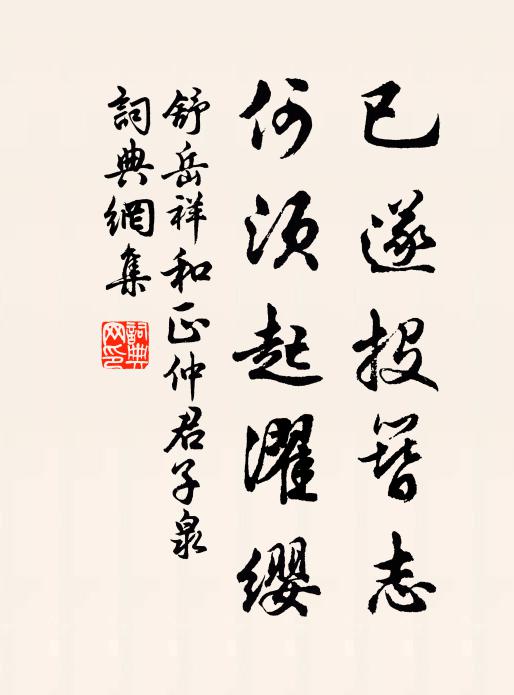 已遂投簪志
何须起濯缨
舒岳祥和正仲君子泉
詞典網集
詞典网印